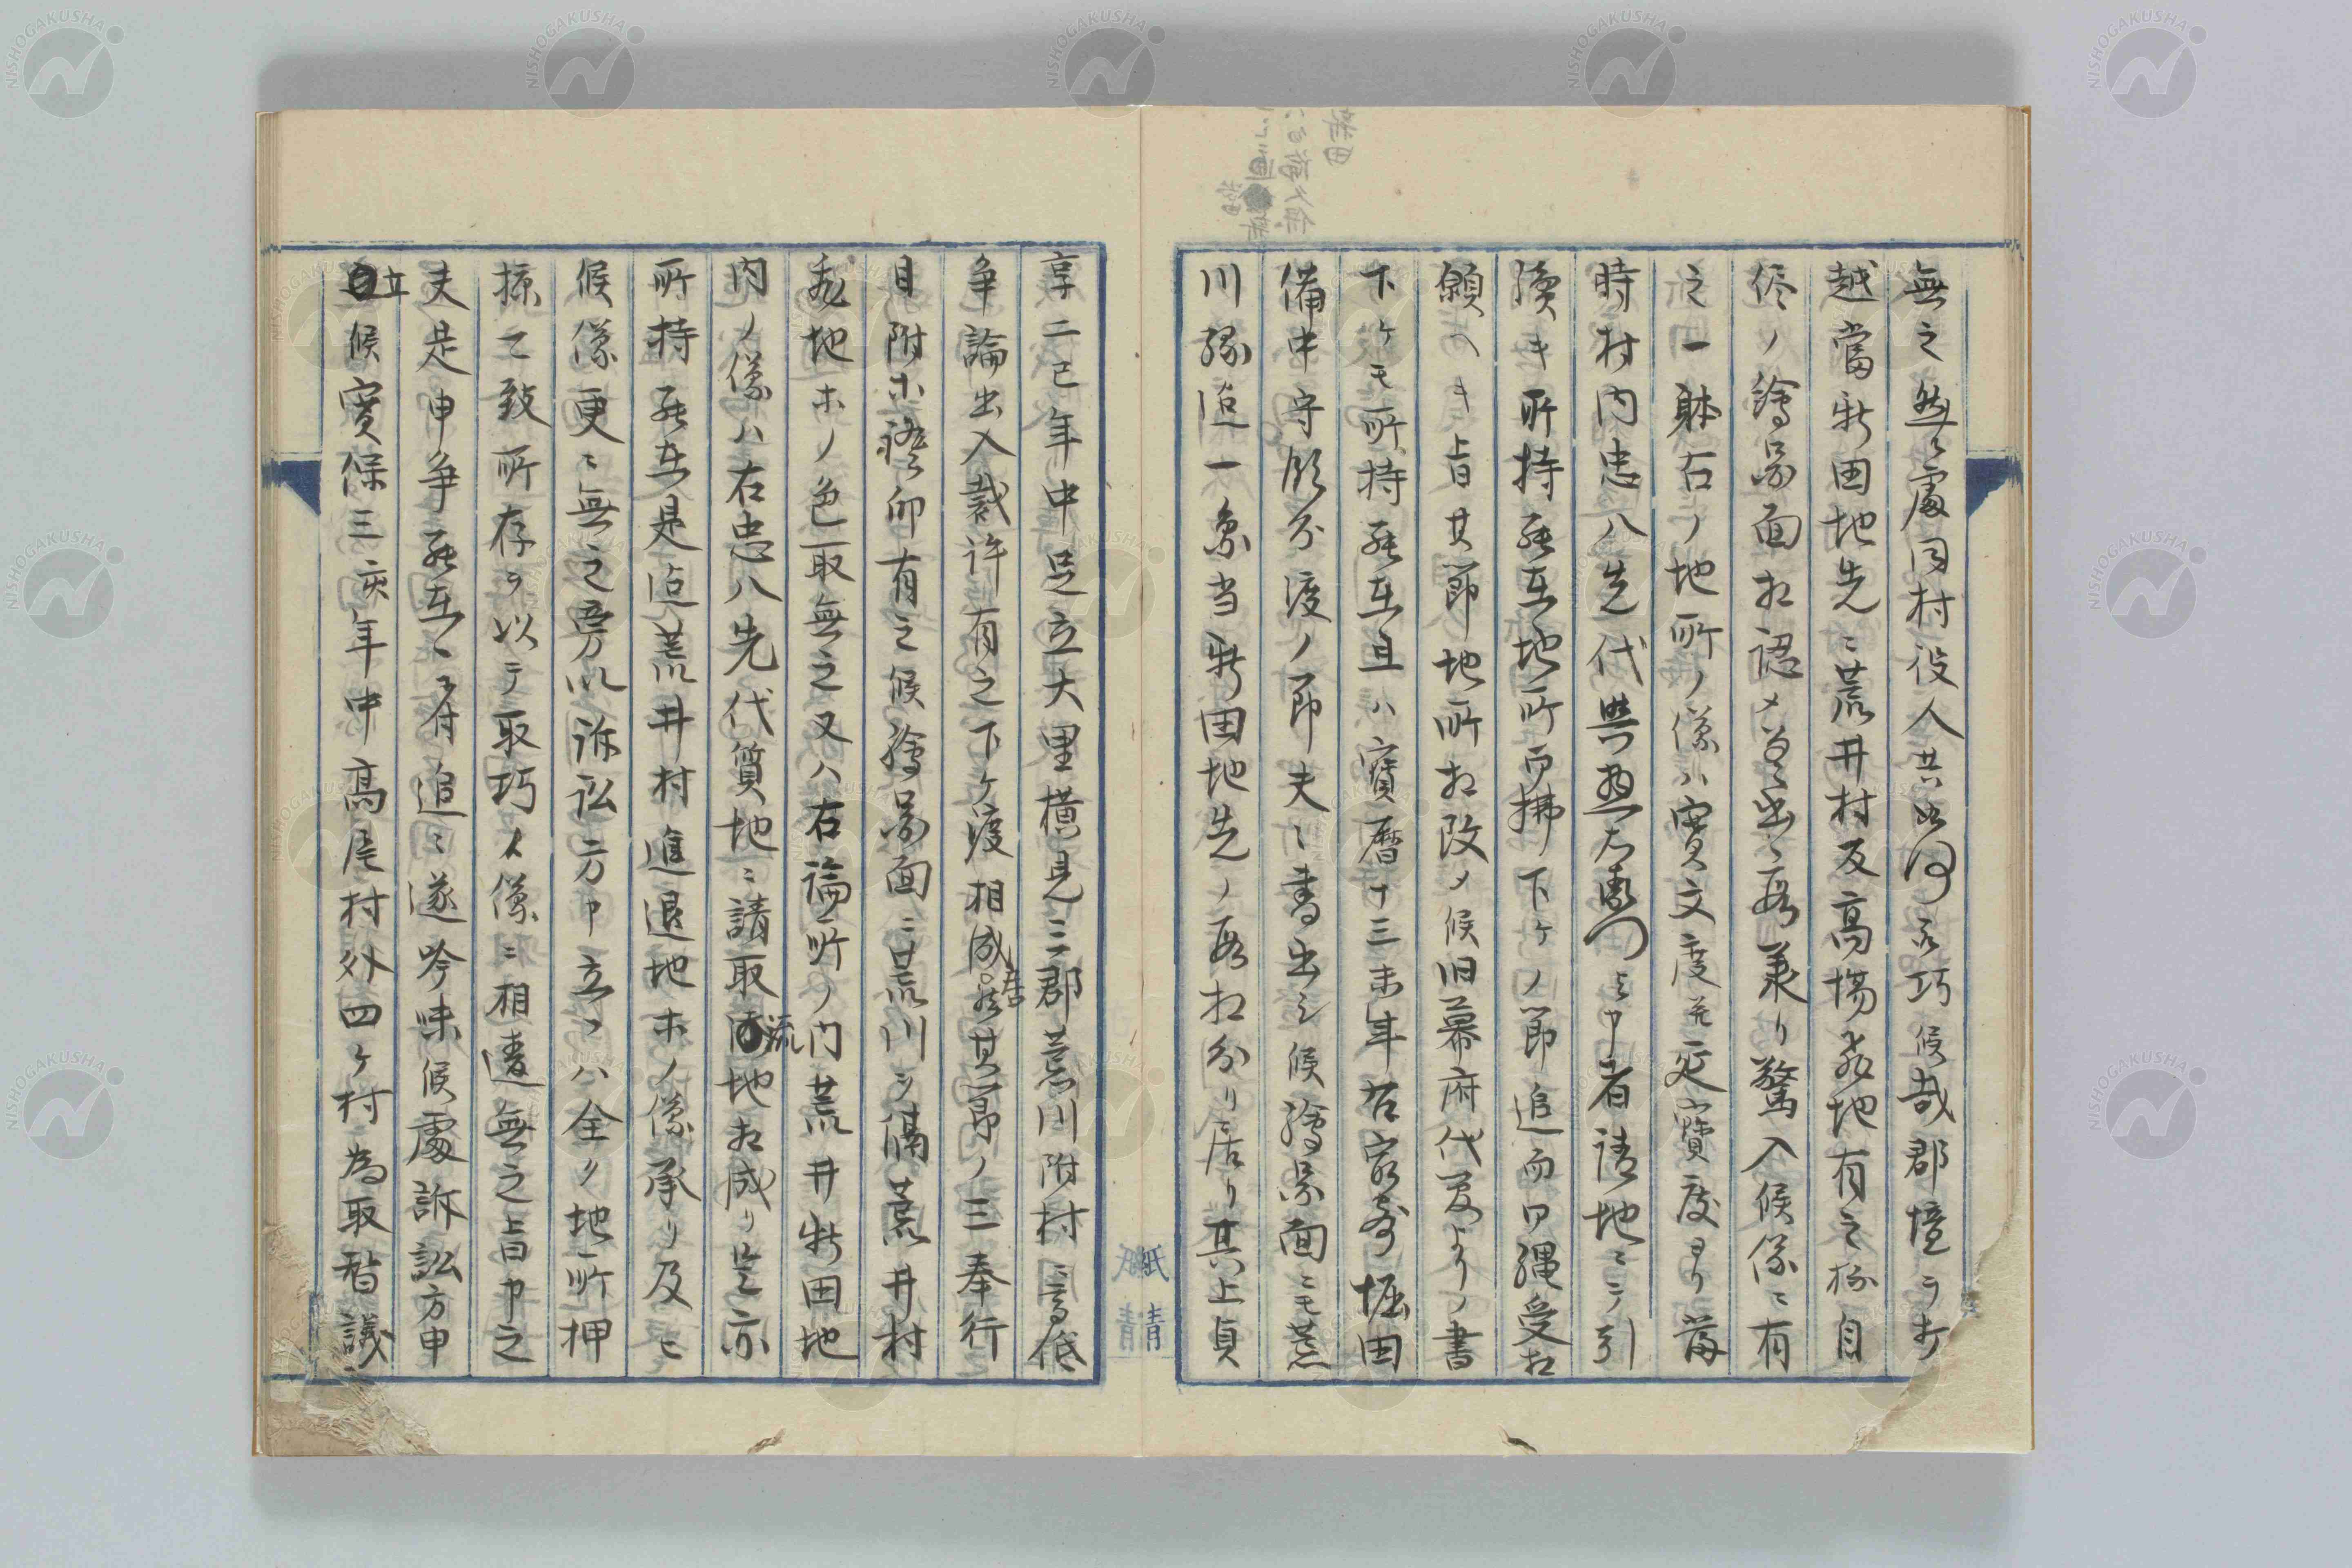 無之然ル處同村役人共如何ニ巧候哉郡境ヲ打
越當新田地先ニ荒井村及高場秣地有之抔自
侭ノ繪圖面相認メ差出シ候義承リ驚入候儀ニ有
之一躰右ノ地所ノ儀ハ寛文度并延寶度ヨリ前
時村内忠八先代與惣右衛門ト申者請地ニシテ引
續キ所持罷在地所而拂下ケノ節追而口縄受相
願ヘキ旨其節地所相改メ候旧幕府代官よりノ書
下ケモ所持罷在且ハ寶暦十三未年右家来堀田
備中守領分渡ノ節夫ニ書出シ候繪圖面ニモ荒
川縁迠一圓当新田地先ノ段相分リ居リ其上貞
享二巳年中足立大里横見三郡荒川附村ニ高低
争論出入裁許有之下ケ渡相成居候其節ノ三奉行
目附ホ證印有之候繪圖面ニ荒川ヲ隔荒井村
秣地ホノ色取無之又ハ右論所ノ内荒井新田地
内ノ儀ハ右忠八先代質地ニ請取流地相成リ是亦
所持罷在是迠荒井村進退地ホノ儀承リ及ヒ
候儀更ニ無之旁以訴訟方申立ハ全ク地所押
掠て致所存ヲ以テ取巧イ儀ニ相違無之旨申之
夫是申争罷在ニ付追ニ遂吟味候處訴訟方申
立候寛保三亥年中高尾村外四ケ村為取替議
紙
青
NISHOGAKUSHA